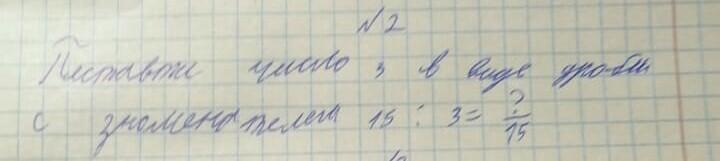 №2
Поставте число 3 в виде дробии
с знаменателем 15 : 3 = ?/15